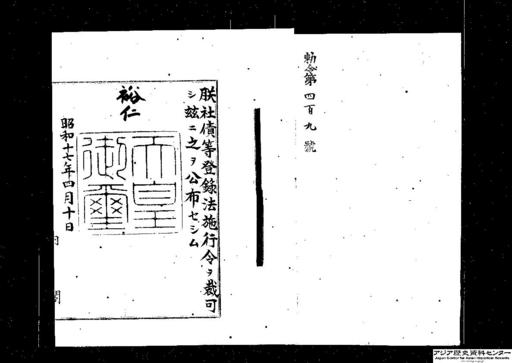 勅令第四百九號
朕社債等登錄法施行令ヲ裁可
シ茲ニ之ヲ公布セシム
裕仁
天皇
御璽
昭和十七年四月十日
内閣
アジア歴史資料センター
Japan Center for Asian Historical Records